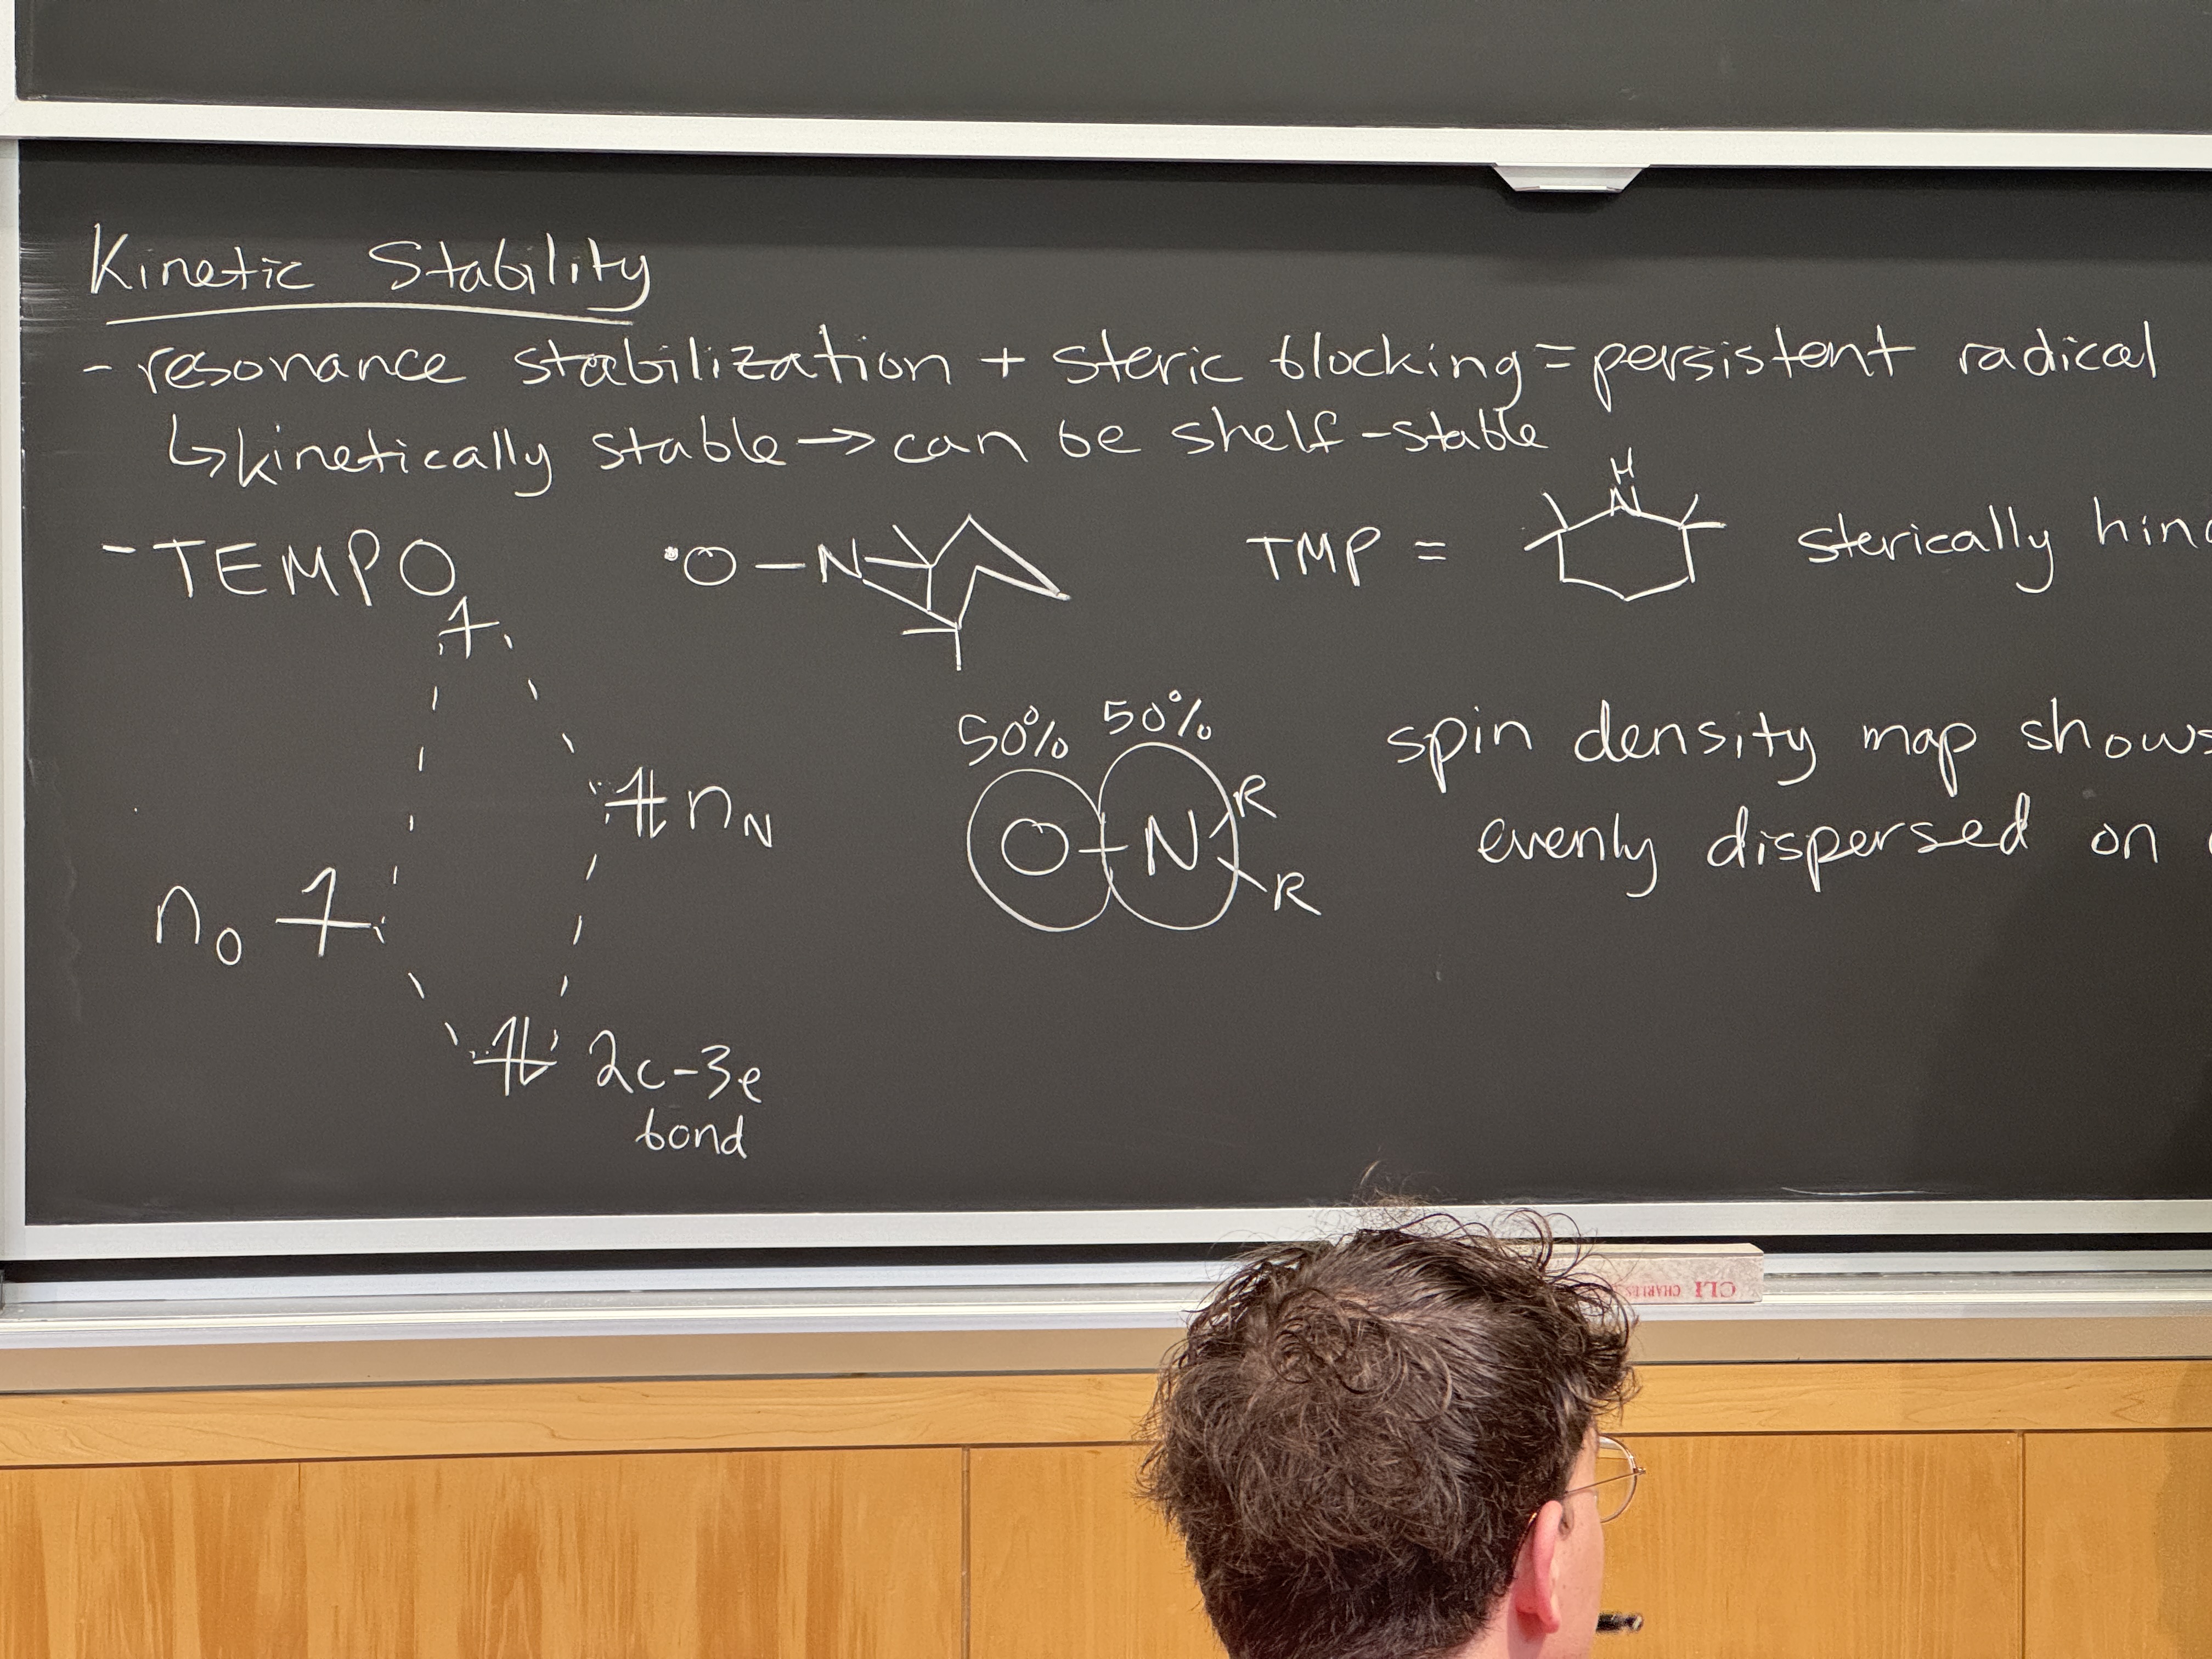 Kinetic Stability
- resonance stabilization + steric blocking = persistent radical
↳ kinetically stable → can be shelf-stable
- TEMPO •O-N TMP = H N sterically hin
50% 50%
spin density map shows
n_N O-N R R
evenly dispersed on
n_O
2c-3e
bond
CLI CHARLES